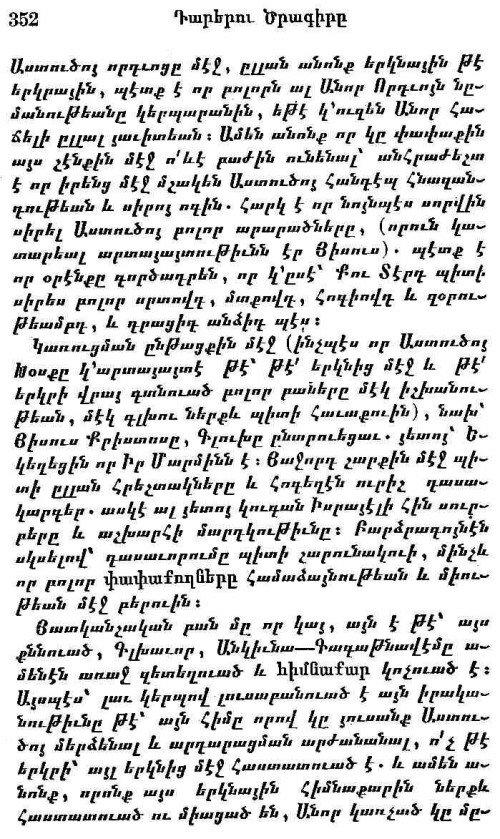 352 Դարերու Ծրագիրը
Աստուծոյ որդւոցը մէջ, ըլլան անոնք երկնային թէ
երկրային, պէտք է որ բոլորն ալ Անոր Որդւոյն նը-
մանութեանը կերպարանին, եթէ կ՚ուզեն Անոր Հա-
ճելի ըլլալ յաւիտեան։ Ամեն անոնք որ կը փափաքին
այս չէնքին մէջ ո՛ևէ բաժին ունենալ՝ անհրաժեշտ
է որ իրենց մէջ մշակեն Աստուծոյ Հանդէպ Հնազան-
դութեան և սիրոյ ոգին. Հարկ է որ նոյնպէս սորվին
սիրել Աստուծոյ բոլոր արարածները, (որուն կա-
տարեալ արտայայտութիւնն էր Յիսուս). պէտք է
որ օրէնքը գործադրեն, որ կ՚ըսէ՝ Քու Տէրդ պիտի
սիրես բոլոր սրտովդ, մտքովդ, Հոգիովդ և զօրու-
թեամբդ, և դրացիդ անձիդ պէս։
Կառուցման ընթացքին մէջ (ինչպէս որ Աստուծոյ
Խօսքը կ՚արտայայտէ թէ՝ թէ՛ երկնից մէջ և թէ՛
երկրի վրայ գտնուած բոլոր բաները մէկ իշխանու-
թեան, մէկ գլխու ներքև պիտի Հաւաքուին), նախ՝
Յիսուս Քրիստոսը, Գլուխը ընտրուեցաւ. յետոյ՝ Ե-
կեղեցին որ Իր Մարմինն է։ Յաջորդ շարքին մէջ պի-
տի ըլլան Հրեշտակները և Հոգեղէն ուրիշ դասա-
կարգեր. ասկէ ալ յետոյ կուգան Իսրայէլի Հին սուր-
բերը և աշխարՀի մարդկութիւնը։ Բարձրագոյնէն
սկսելով՝ դասաւորումը պիտի շարունակուի, մինչև
որ բոլոր փափաքողները Համաձայնութեան և միու-
թեան մէջ բերուին։
Յատկանշական բան մը որ կայ, այն է թէ՝ այս
քննուած, Գլխաւոր, Անկիւնա—Գագաթնավէմը ա-
մենէն առաջ զետեղուած և հիմնաքար կոչուած է։
Այսպէս՝ լաւ կերպով լուսաբանուած է այն իրակա-
նութիւնը թէ՝ այն Հիմը որով կը յուսանք Աստու-
ծոյ մերձենալ և արդարացման արժանանալ, ո՛չ թէ
երկրի՝ այլ երկնից մէջ Հաստատուած է. և ամեն ա-
նոնք, որոնք այս երկնային Հիմնաքարին ներքև
Հաստատուած ու միացած են, Անոր կառչած կը մը-